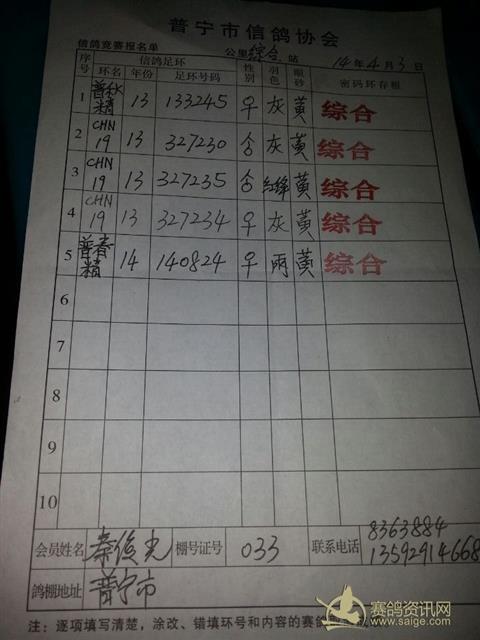 普宁市信鸽协会
信鸽竞赛报名单 公里综合站 14年4月3日
序号 信鸽足环 性别 羽色 眼砂 密码环存根
环名 年份 足环号码
1 普秋精 13 133245 早 灰 黄 综合
2 CHN19 13 327230 合 灰 黄 综合
3 CHN19 13 327235 合 红绛 黄 综合
4 CHN19 13 327234 早 灰 黄 综合
5 普春精 14 140824 早 雨 黄 综合
6
7
8
9
10
会员姓名 秦俊光 棚号证号 033 联系电话 8363884 13592914668
鸽棚地址 普宁市
注：逐项填写清楚，涂改、错填环号和内容的赛鸽
赛鸽资讯网
www.saige.com